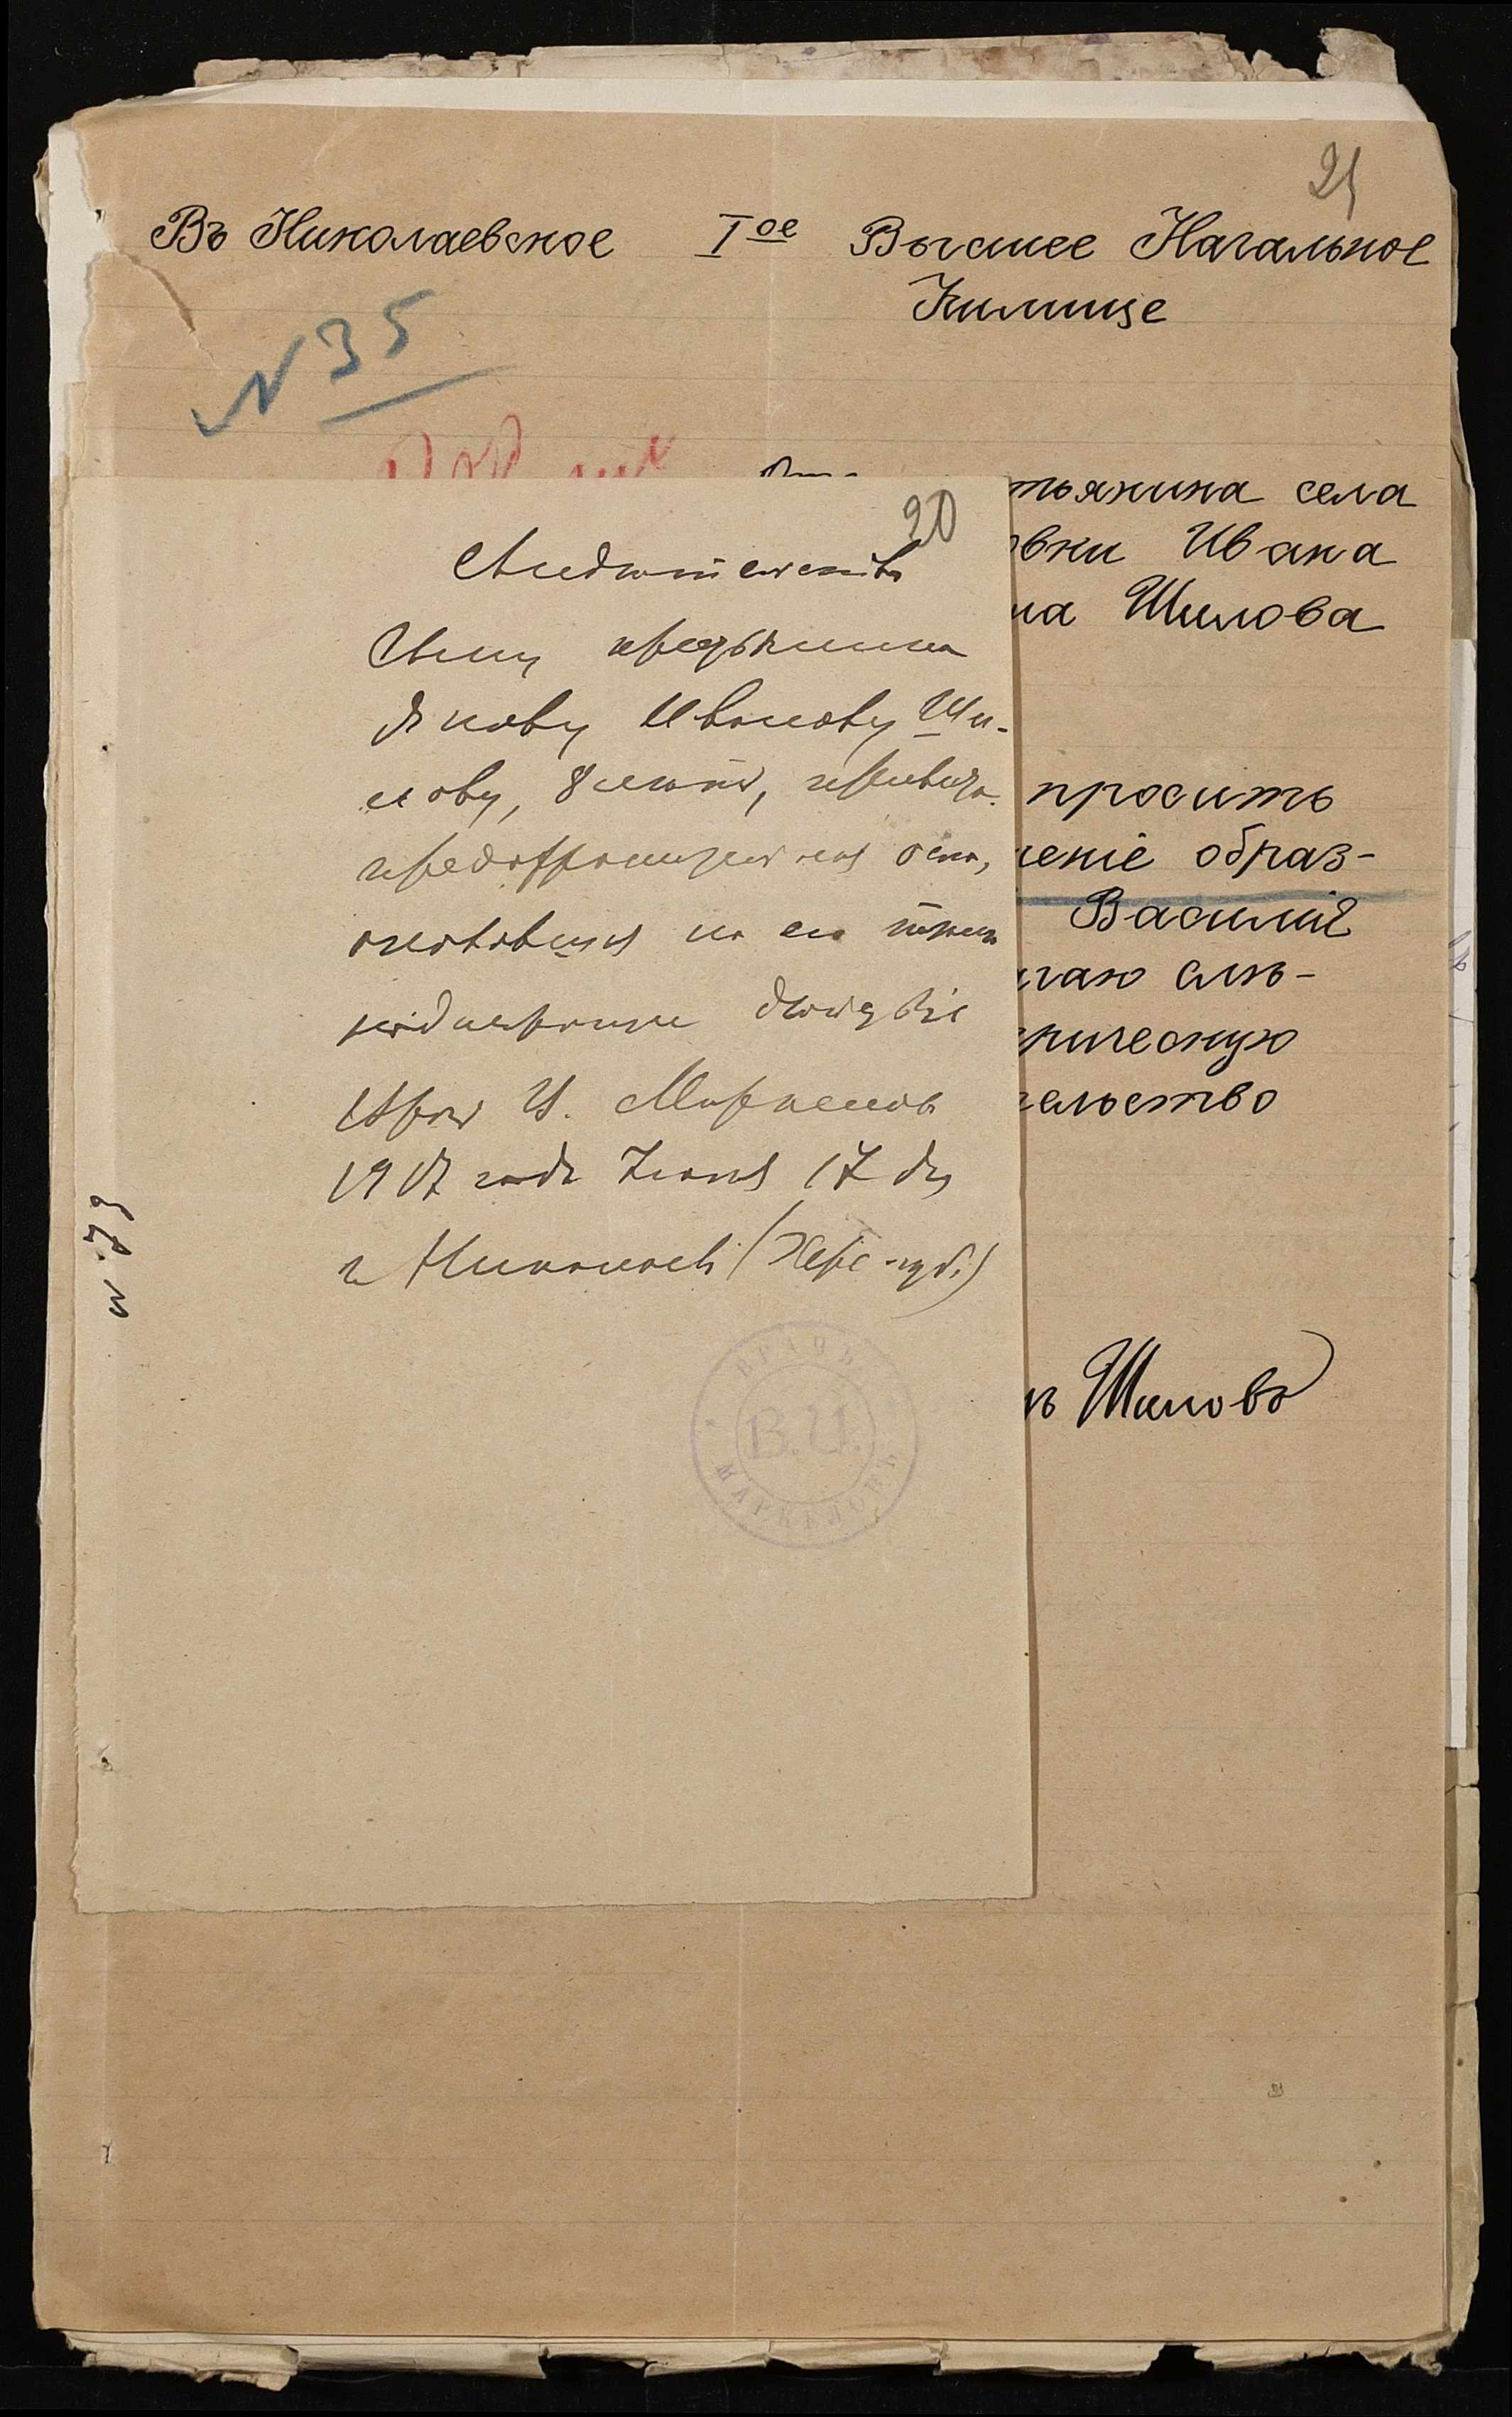 21
Въ Николаевское Iое Высшее Начальное
Училище
N 35
тьянина села
вки Ивана
на Шилова
просить
ченіе образ-
Василій
гаю слѣ-
рическую
тельство
ъ Шиловъ
20
Свидѣтельство
Сыну крестьянина
Якову Иванову Ши-
лову, 8 лѣтъ, привита
предохранительная оспа,
оказавшая на его
Врачъ И. Маркеловъ
1917 года Іюня 17 дн
г Николаевъ (Херс. губ.)
ВРАЧЪ
В. И.
МАРКЕЛОВЪ